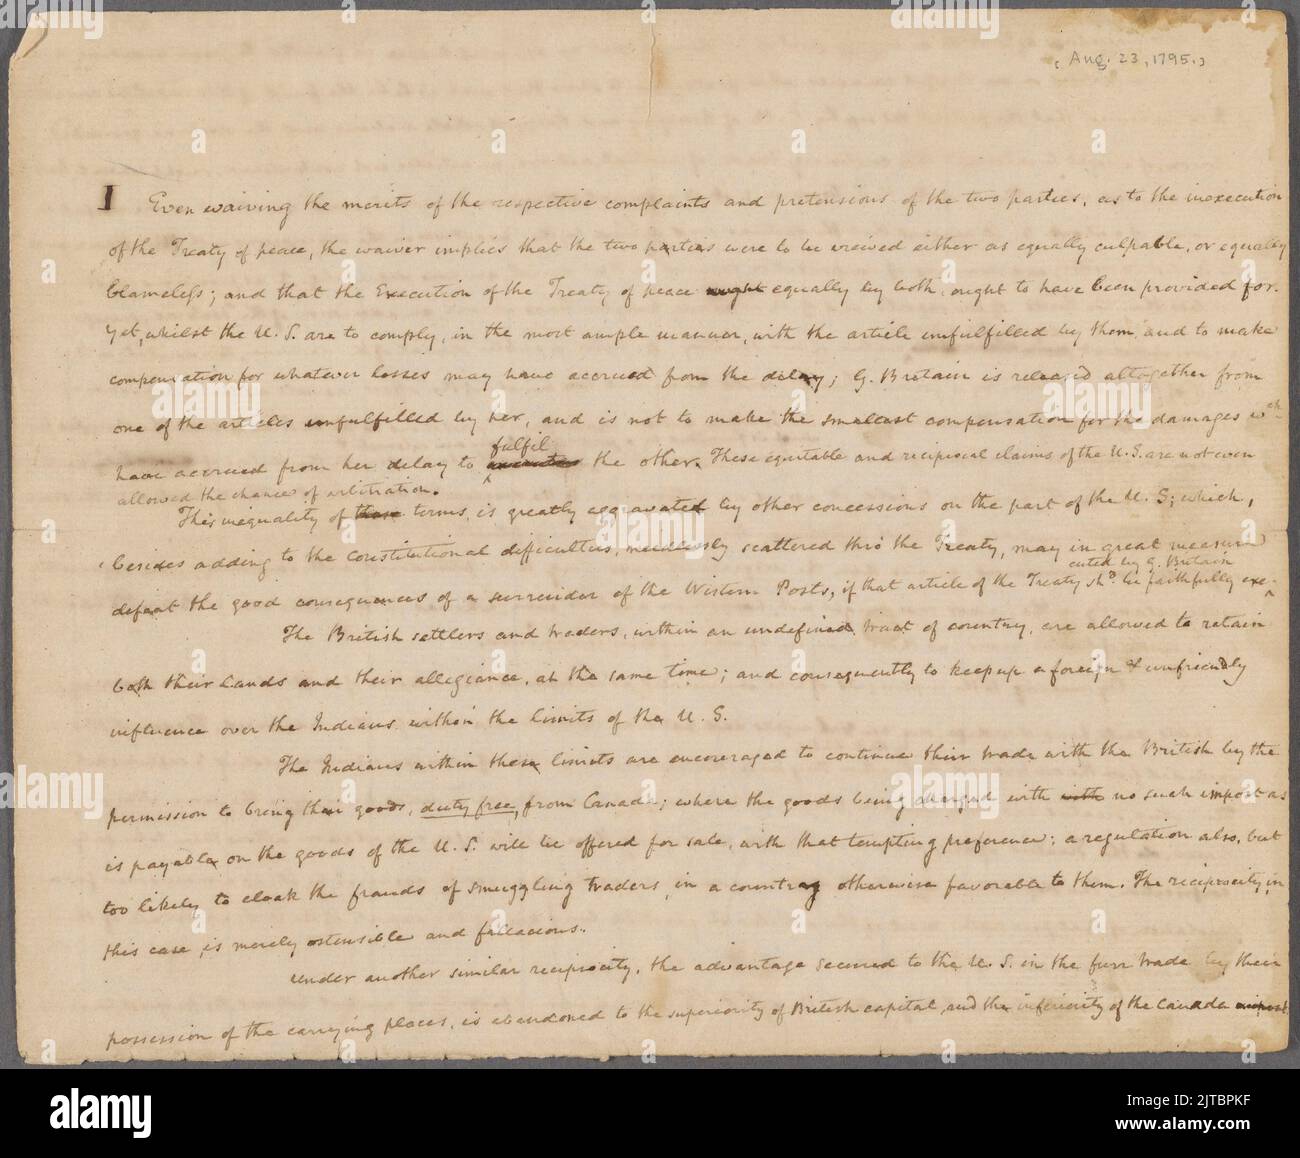 ( Aug. 23, 1795.)
I Even waiving the merits of the respective complaints and pretensions of the two parties, as to the inexecution
of the Treaty of peace, the waiver implies that the two parties were to be viewed either as equally culpable, or equally
blameless; and that the Execution of the Treaty of peace ought equally by both, ought to have been provided for.
Yet, whilst the U. S. are to comply, in the most ample manner, with the article unfulfilled by them, and to make
compensation for whatever losses may have accrued from the delay; G. Britain is released altogether from
one of the articles unfulfilled by her, and is not to make the smallest compensation for the damages wch
fulfil
have accrued from her delay to the other. These equitable and reciprocal claims of the U. S. are not even
allowed the chance of arbitration.
This inequality of these terms, is greatly aggravated by other concessions on the part of the U. S; which,
besides adding to the Constitutional difficulties, needlessly scattered thro' the Treaty, may in great measure
cuted by G. Britain
defeat the good consequences of a surrender of the Western Posts, if that article of the Treaty shd. be faithfully exe-
The British settlers and traders, within an undefined tract of country, are allowed to retain
both their Lands and their allegiance, at the same time; and consequently to keep up a foreign & unfriendly
influence over the Indians within the limits of the U. S.
The Indians within these limits are encouraged to continue their trade with the British by the
permission to bring their goods, duty free, from Canada; where the goods being charged with with no such impost as
is payable on the goods of the U. S. will be offered for sale, with that tempting preference: a regulation also, but
too likely to cloak the frauds of smuggling traders, in a country otherwise favorable to them. The reciprocity, in
this case, is merely ostensible and fallacious.
Under another similar reciprocity, the advantage secured to the U. S. in the furr trade by their
possession of the carrying places, is abandoned to the superiority of British capital, and the inferiority of the Canada impost.
alamy
Image ID: 2JTBPKF
www.alamy.com